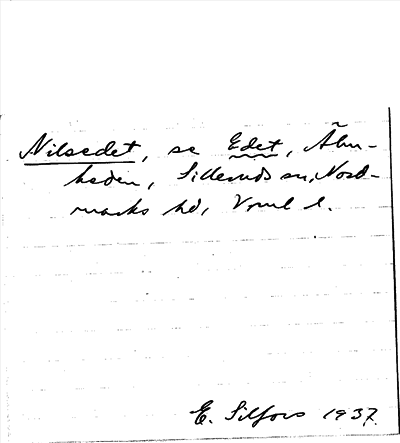 Nilsedet, se Edet, Åhn-
heden, Silleruds sn, Nord-
marks hd, Vrml l.
E. Silfors 1937.